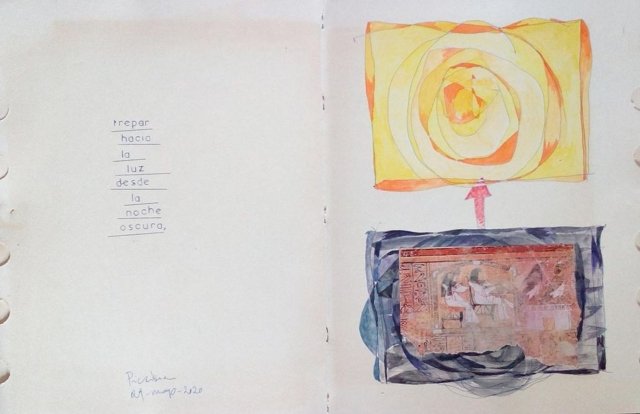 trepar
hacia
la
luz
desde
la
noche
oscura,
mayo-2020